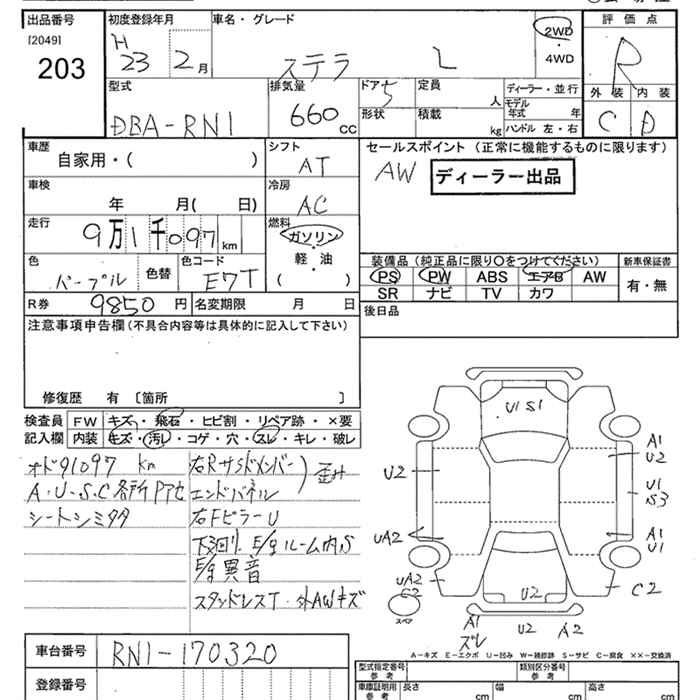 出品番号
[2049]
203
初度登録年月
H
23 2月
車名・グレード
ステラ L
2WD
・
4WD
評価点
R
外装 内装
C D
型式
DBA-RN1
排気量
660 CC
ドア 5
形状
定員
人
積載
kg
ディーラー・並行
モデル
年式 年
ハンドル 左・右
車歴
自家用・( )
シフト
AT
セールスポイント (正常に機能するものに限ります)
AW ディーラー出品
車検
年 月( 日)
冷房
AC
走行
9万1千097 km
燃料
ガソリン
・
軽・油
・
( )
色
パープル
色替
色コード
E7T
装備品 (純正品に限り〇をつけてください)
PS PW ABS エアB AW
SR ナビ TV カワ
新車保証書
有・無
R券 9850 円
名変期限 月 日
後日品
注意事項申告欄 (不具合内容等は具体的に記入して下さい)
修復歴 有 〔箇所 〕
検査員
記入欄
FW キズ・飛石・ヒビ割・リペア跡・×要
内装 キズ・汚レ・コゲ・穴・スレ・キレ・破レ
オド91097 km
A・U・S・C各所
シートシミ
右Rサイドメンバー
エンドパネル
歪み
右FピラーU
下廻り、E/gルーム内S
E/g異音
スタッドレスT・外AWキズ
U1 S1
A1
U2
U2
U1
S3
UA2
A1
U1
UA2
C2
U2
C2
スペア
A1
ズレ
U2
A2
A-キズ E-エクボ U-凹み W-補修跡 S-サビ C-腐食 XX-交換済
車台番号 RN1-170320
登録番号
型式指定番号
参考
類別区分番号
参考
車庫証明用
参考
長さ cm
幅 cm
高さ cm